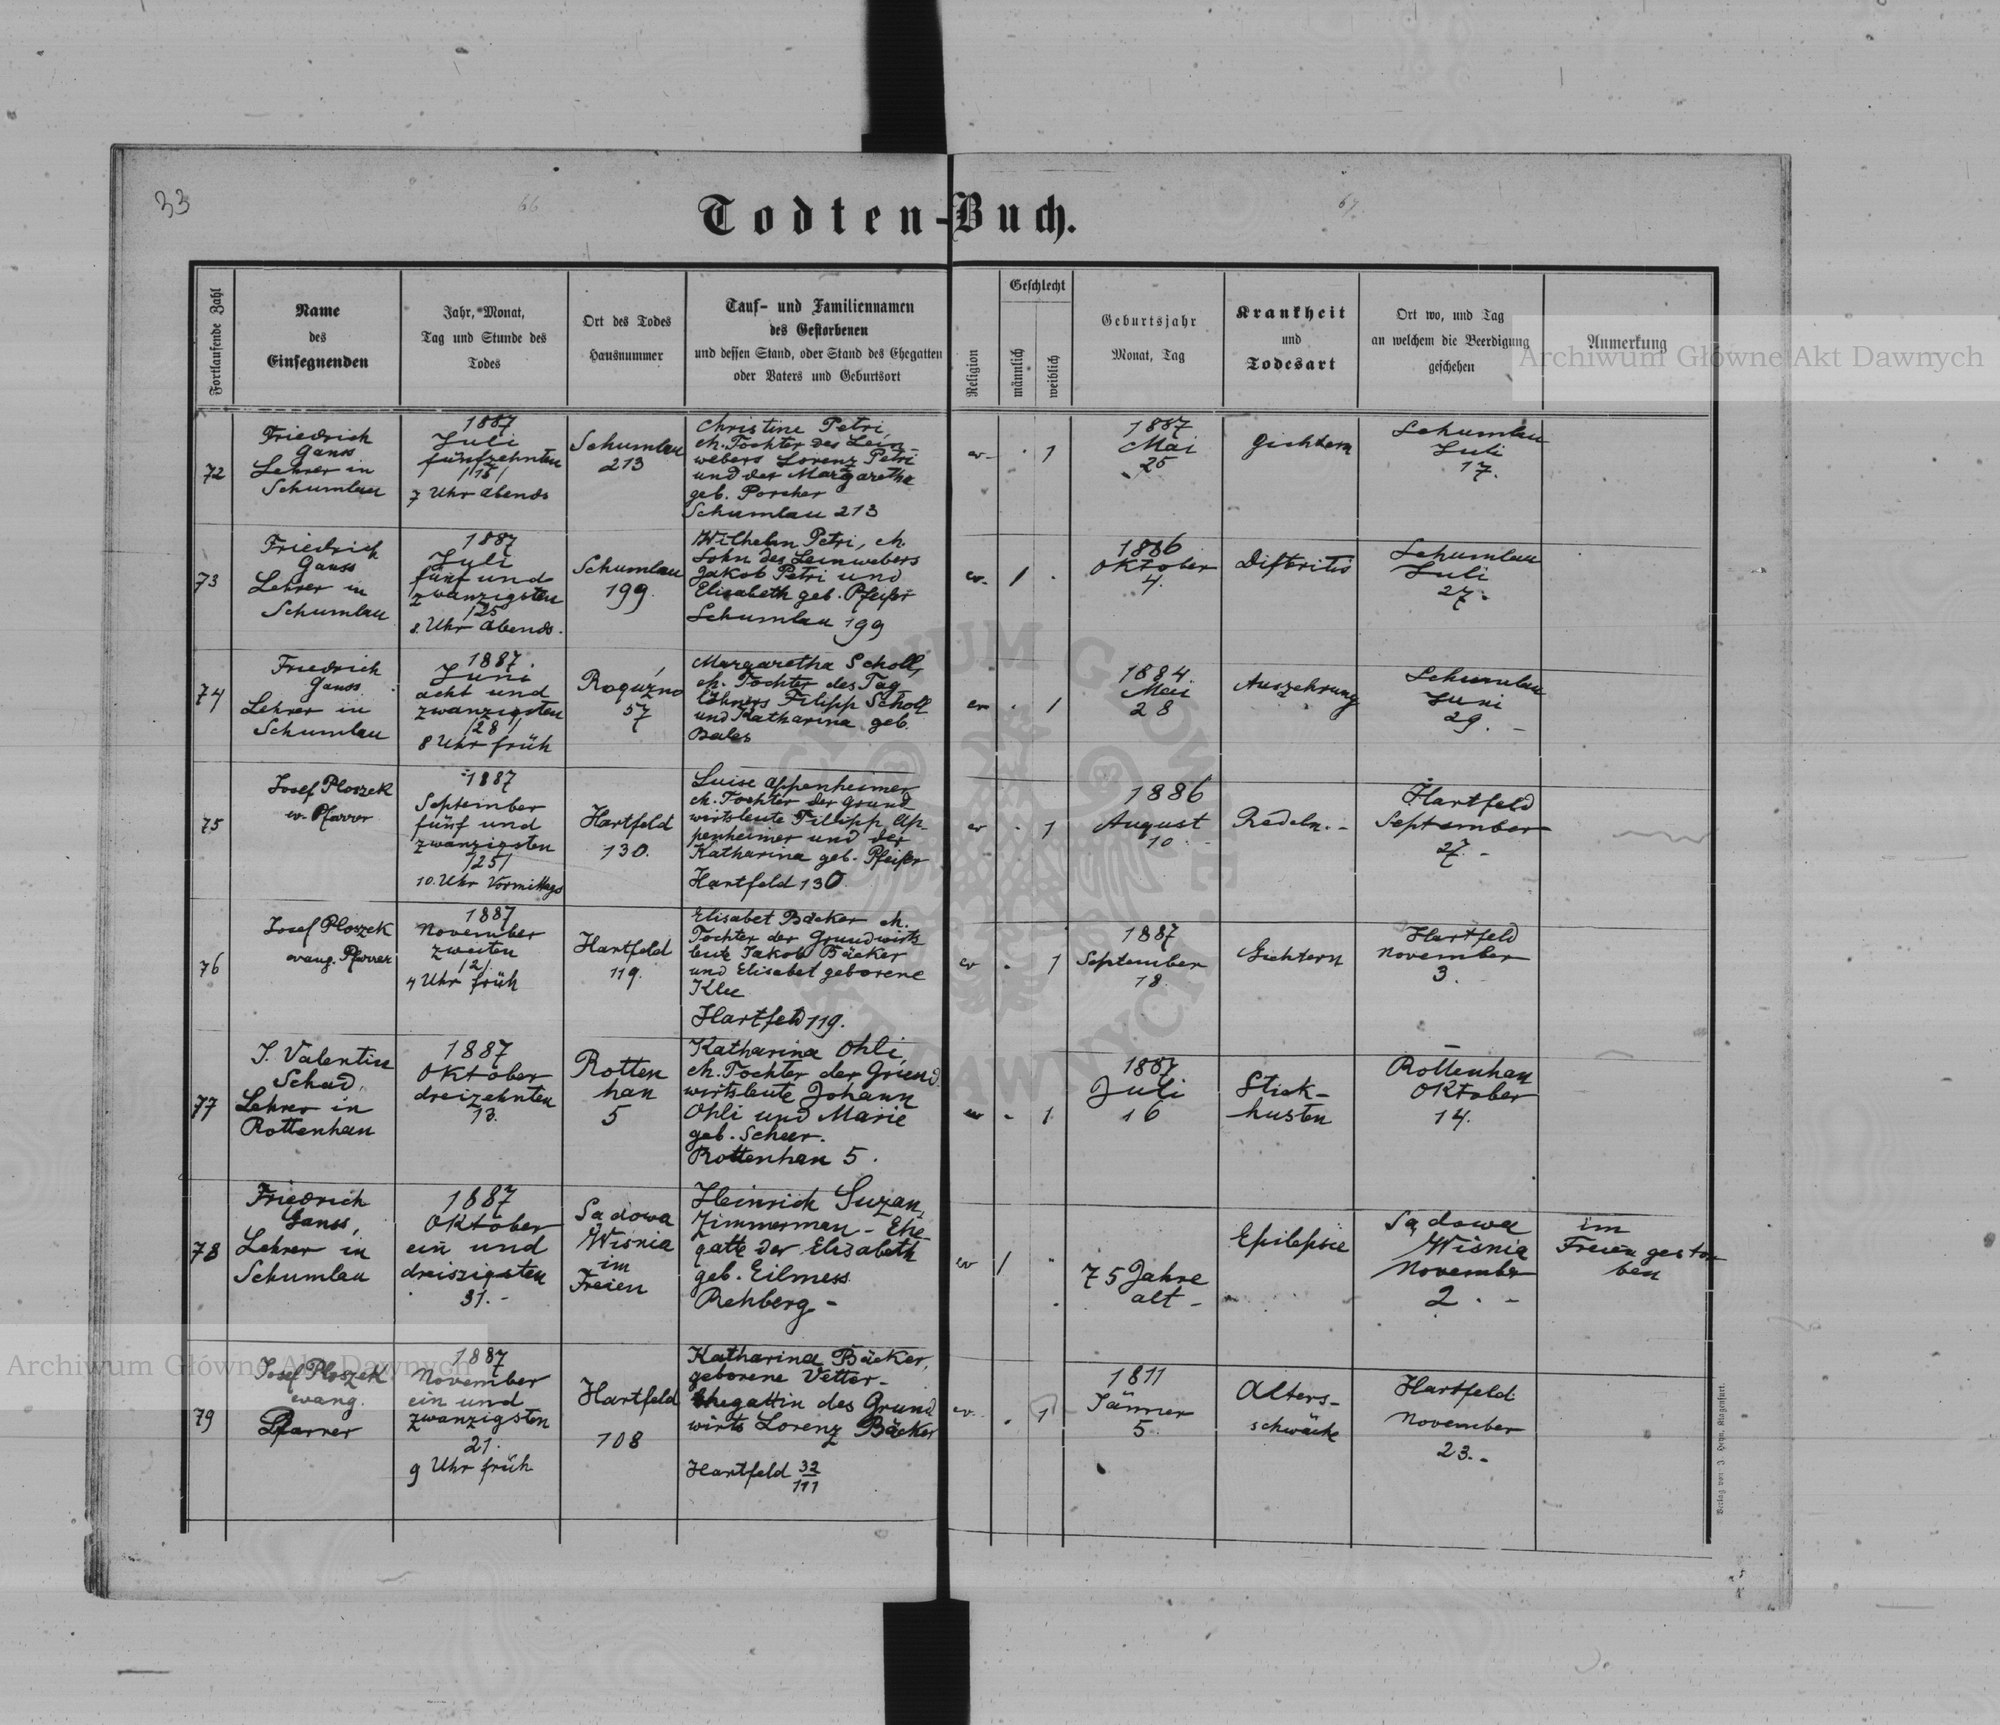 33
66
67
Todten-Buch.
Fortlaufende Zahl
Name
des
Einsegnenden
Jahr, Monat,
Tag und Stunde des
Todes
Ort des Todes
Hausnummer
Tauf- und Familiennamen
des Gestorbenen
und dessen Stand, oder Stand des Ehegatten
oder Vaters und Geburtsort
Religion
Geschlecht
männlich
weiblich
Geburtsjahr
Monat, Tag
Krankheit
und
Todesart
Ort wo, und Tag
an welchem die Beerdigung
geschehen
Anmerkung
Archiwum Główne Akt Dawnych
72
Friedrich
Ganss
Lehrer in
Schumlau
1887
Juli
fünfzehnten
/15/
7 Uhr abends
Schumlau
213
Christine Petri
eh. Tochter des Lein-
webers Lorenz Petri
und der Margaretha
geb. Porcher
Schumlau 213
ev.
1
1887
Mai
25
Gichtern
Schumlau
Juli
17.
73
Friedrich
Ganss
Lehrer in
Schumlau
1887
Juli
fünf und
zwanzigsten
/25
8. Uhr abends.
Schumlau
199.
Wilhelm Petri, eh.
Sohn des Leinwebers
Jakob Petri und
Elisabeth geb. Pfeifer
Schumlau 199
ev.
/
1886
Oktober
4.
Difteritis
Schumlau
Juli
27.
74
Friedrich
Ganss
Lehrer in
Schumlau
1887.
Juni
acht und
zwanzigsten
/28/
8 Uhr früh
Roguźno
57
Margaretha Scholl,
eh. Tochter des Tag
löhners Filipp Scholl
und Katharina geb.
Bales
ev.
/
1884.
Mai
28
Auszehrung
Schumlau
Juni
29. -
75
Josef Ploszek
ev. Pfarrer
1887
September
fünf und
zwanzigsten
/25/
10. Uhr Vormittags
Hartfeld
130.
Luise Appenheimer
eh. Tochter der Grund
wirtsleute Fillipp Ap-
penheimer und der
Katharina geb. Pfeifer
Hartfeld 130.
ev
1
1886
August
10
Rodeln. -
Hartfeld
September
27. -
76
Josef Ploszek
evang. Pfarrer
1887
November
zweiten
/2/
4 Uhr früh
Hartfeld
119.
Elisabet Bäcker eh.
Tochter der Grundwirts
leute Jakob Bäcker
und Elisabet geborene
Klee
Hartfeld 119.
ev
1
1887
September
18.
Gichtern
Hartfeld
November
3.
77
J. Valentin
Schad,
Lehrer in
Rottenhan
1887
Oktober
dreizehnten
13.
Rotten
han
5
Katharina Ohli,
eh. Tochter der Grund
wirtsleute Johann
Ohli und Marie
geb. Scheer.
Rottenhan 5.
ev
1
1887
Juli
16
Stick-
husten
Rottenhan
Oktober
14.
78
Friedrich
Ganss,
Lehrer in
Schumlau
1887
Oktober
ein und
dreiszigsten
31. -
Sądowa
Wisnia
im
Freien
Heinrich Suzan,
Zimmerman - Ehe
gatte der Elisabeth
geb. Eilmess
Rehberg. -
ev
/
75 Jahre
alt -
Epilepsie
Sądowa
Wiśnia
November
2. -
im
Freien gestor
ben
79
Josef Ploszek
evang.
Pfarrer
1887
November
ein und
zwanzigsten
21.
9 Uhr früh
Hartfeld
108
Katharina Bäcker,
geborene Vetter -
Ehegattin des Grund
wirts Lorenz Bäcker
Hartfeld 32/111
ev.
1
1811
Jänner
5.
Alters-
schwäche
Hartfeld
November
23. -
Archiwum Główne Akt Dawnych
Verlag von J. Heyn, Klagenfurt.
ARCHIWUM GŁÓWNE AKT DAWNYCH